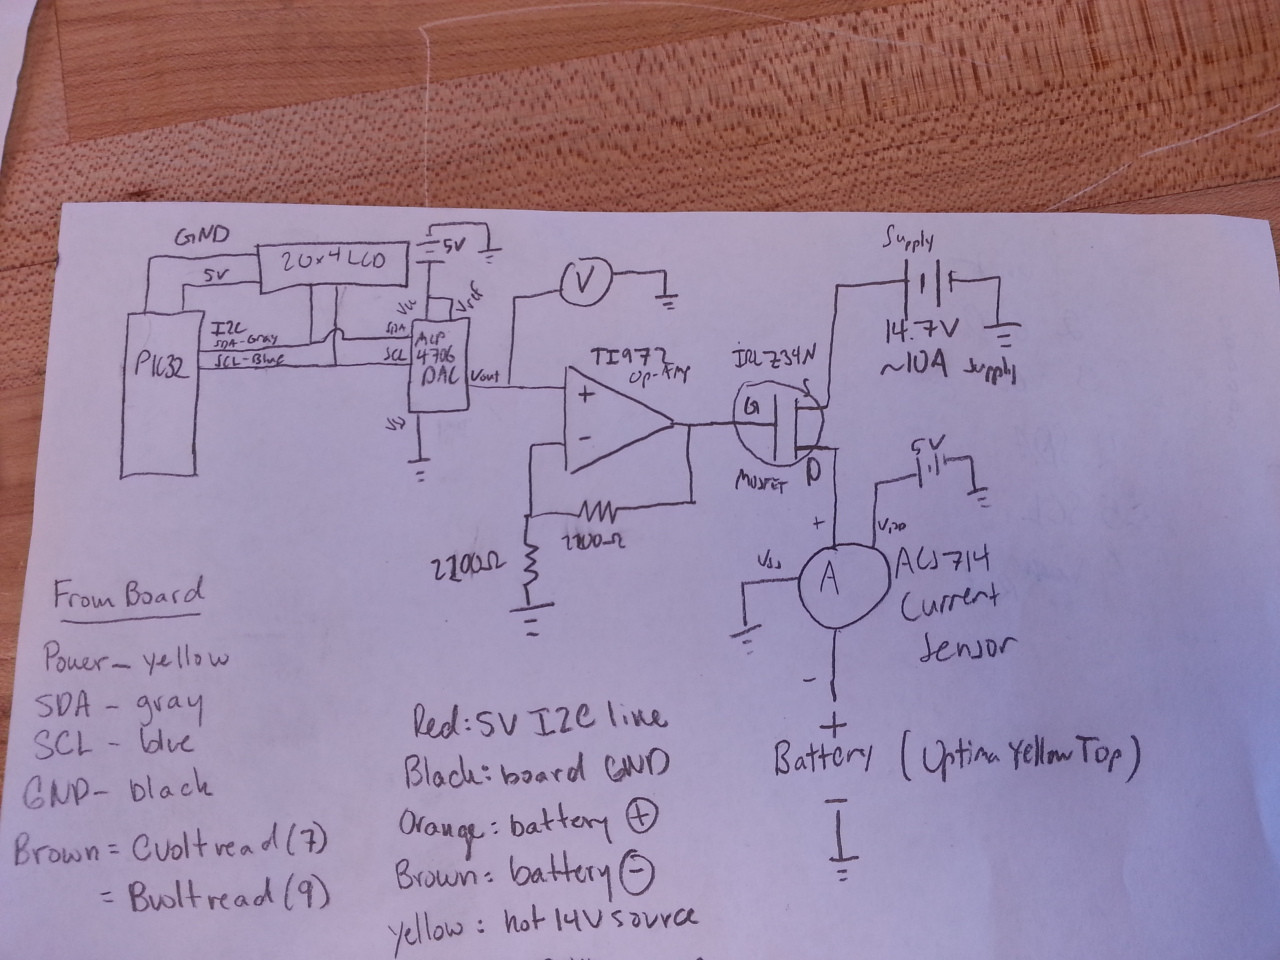 GND
5V
20x4 LCD
5V
Vref
I2C
SDA-Gray
SCL-Blue
SDA
SCL
PIC32
4706
DAC
Vout
V
TI972
Op-Amp
+
-
2200Ω
IRLZ34N
G
S
D
MOSFET
Supply
14.7V
~10A supply
5V
+
Vss
A
ACS714
Current
Sensor
-
+
Battery (Optima Yellow Top)
-
From Board
Power - yellow
SDA - gray
SCL - blue
GND - black
Brown = Cvoltread (7)
= Bvoltread (9)
Red: 5V I2C line
Black: board GND
Orange: battery +
Brown: battery -
yellow: hot 14V source